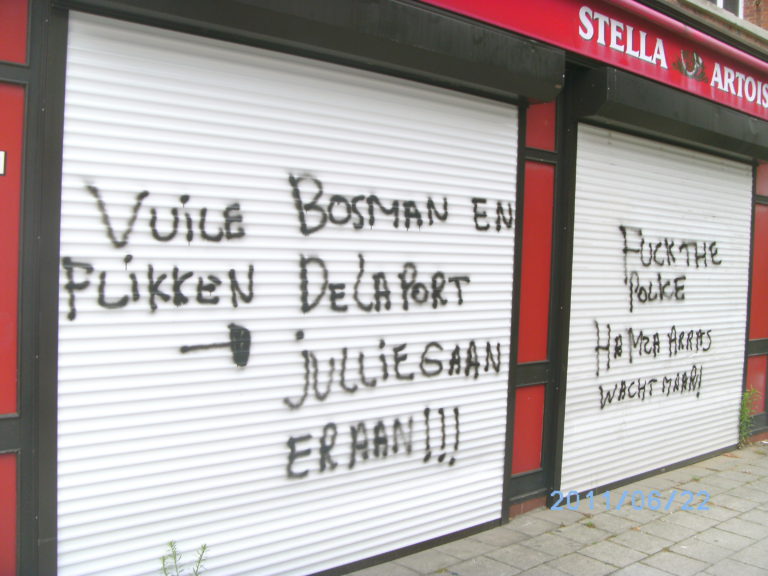 STELLA ARTOIS
VUILE
FLIKKEN
BOSMAN EN
DELAPORT
JULLIE GAAN
ER AAN!!!
FUCK THE
POLICE
HAMZA ARRAS
WACHT MAAR!
2011/06/22